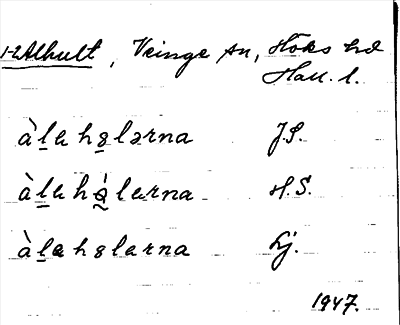 1-2 Alhult, Veinge sn, Höks hd
Hall. l.
àlahələrna J.S.
àlahə̀larna H.S.
àlahəlarna Lj.
1947.